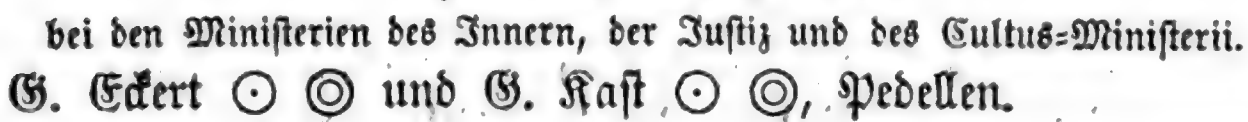 bei den Ministerien des Innern, der Justiz und des Cultus-Ministerii.
G. Eckert ☉ ◎ und G. Kast ☉ ◎, Pedellen.